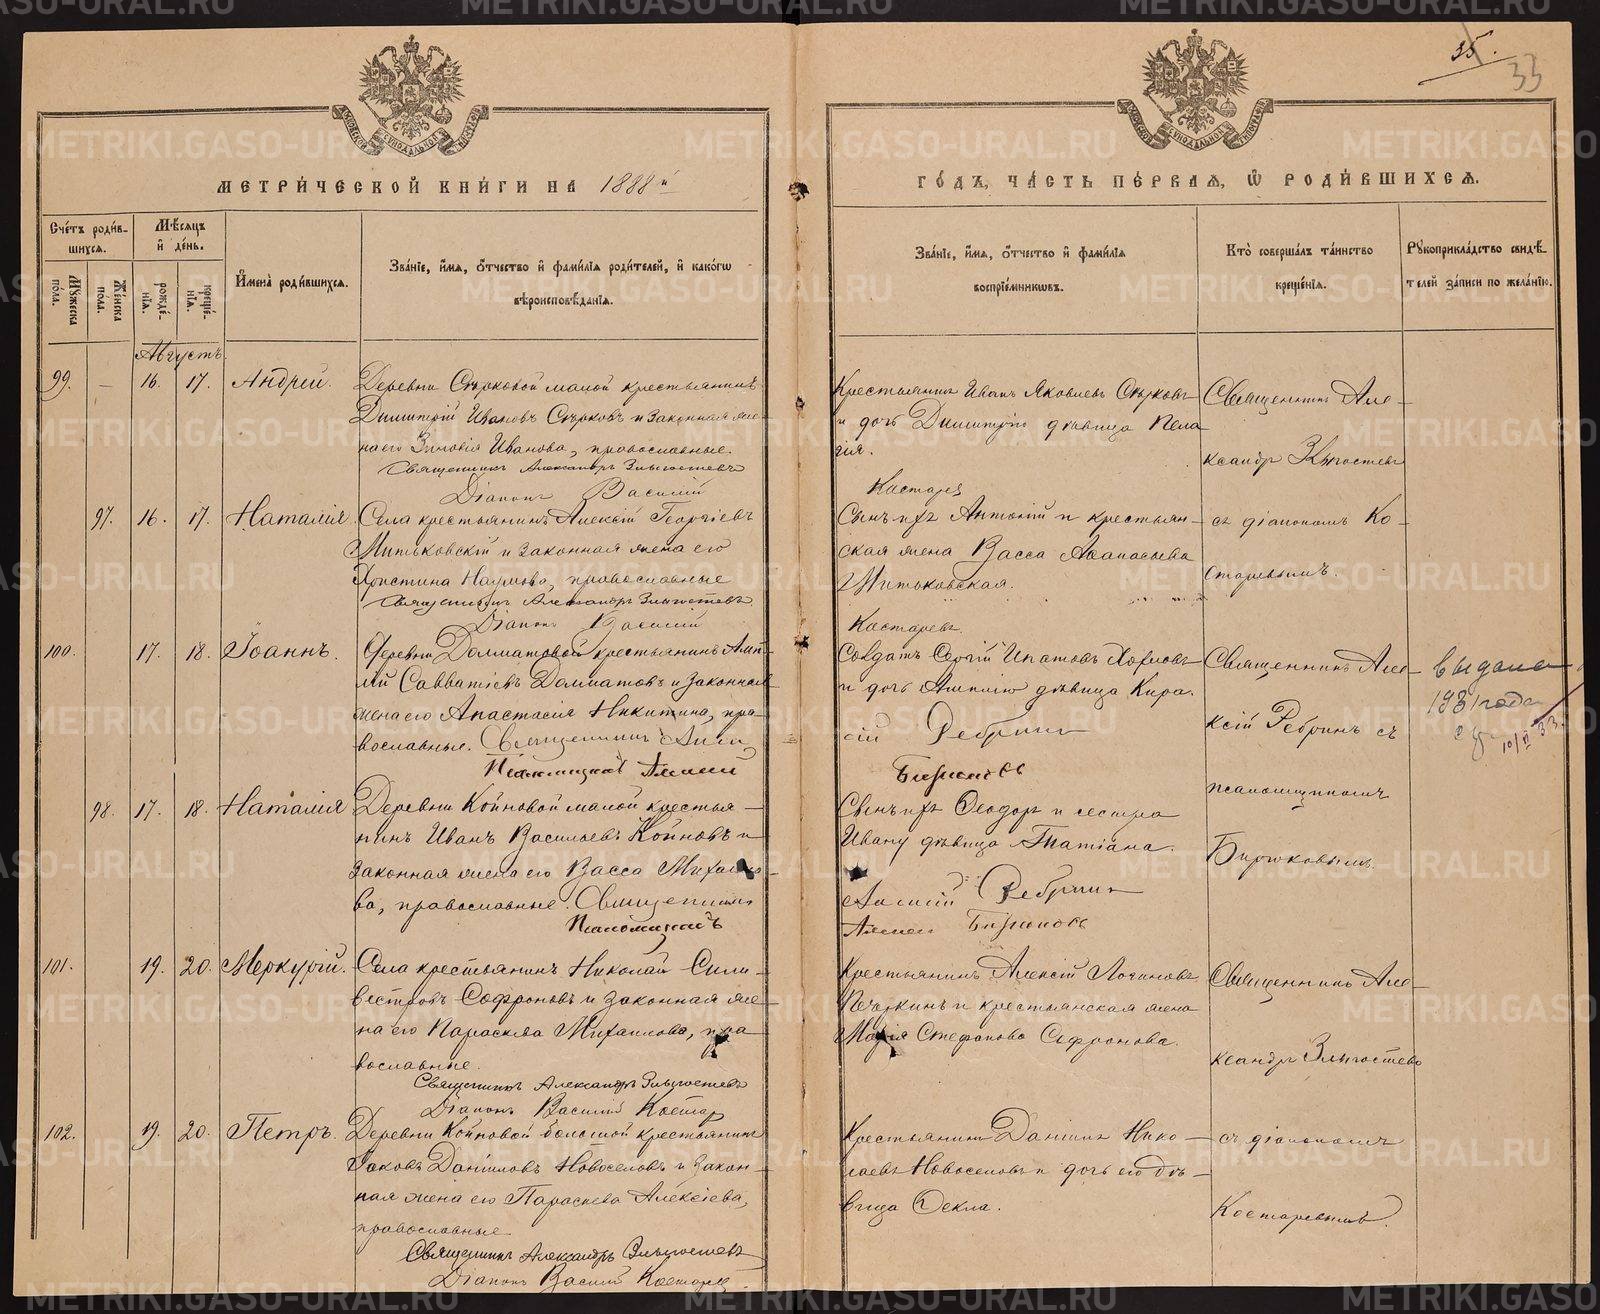 35.
33
МОСКОВСКОЙ СѴНОДАЛЬНОЙ ТИПОГРАФІИ
МОСКОВСКОЙ СѴНОДАЛЬНОЙ ТИПОГРАФІИ
МЕТРИЧЕСКОЙ КНИГИ НА 1888й
ГОДЪ, ЧАСТЬ ПЕРВАЯ, Ѡ РОДИВШИХСЯ.
Счетъ родив-
шихся.
Мужеска пола.
Женска пола.
Мѣсяцъ
и день.
рожденія.
крещенія.
Имена родившихся.
Званіе, имя, отчество и фамилія родителей, и какогѡ
вѣроисповѣданія.
Званіе, имя, отчество и фамилія
воспріемникѡвъ.
Кто совершалъ таинство
крещенія.
Рукоприкладство свидѣ-
телей записи по желанію.
Августъ
99. — 16. 17. Андрей.
Деревни Сырковой малой крестьянинъ
Димитрій Ивановъ Сырковъ и законная же-
на его Зиновія Иванова, православные.
Священникъ Александръ Злыгостевъ
Діаконъ Василій
Крестьянинъ Иванъ Яковлевъ Сырковъ
и дочь Димитрію дѣвица Пела
гія.
Костарев
Священникъ Але-
ксандръ Злыгостевъ
97. 16. 17. Наталія.
Села крестьянинъ Алексій Георгіевъ
Митьковскій и законная жена его
Христина Наумова, православные
Священникъ Александръ Злыгостевъ
Діаконъ Василій
Сынъ ихъ Антоній и крестьян-
ская жена Васса Аѳанасьева
Митьковская.
Костаревъ
съ діакономъ Ко-
старевымъ.
100. 17. 18. Іоаннъ.
Деревни Долматовой крестьянинъ
Савватіевъ Долматовъ и законная
жена его Анастасія Никитина, пра-
вославные. Священникъ Алек
Псаломщикъ Алексей
Солдатъ Сергій Ипатовъ
и дочь дѣвица Кира.
сій Ребринъ
Бирюковъ
Священникъ Але-
ксій Ребринъ съ
псаломщикомъ
Бирюковымъ.
выдана
1931 года
10/II 33.
98. 17. 18. Наталія
Деревни Койновой малой крестья-
нинъ Иванъ Васильевъ Койновъ и
законная жена его Васса Михайло-
ва, православные. Священникъ
Псаломщикъ
Сынъ ихъ Ѳеодоръ и сестра
Ивану дѣвица Татіана.
Алексій Ребринъ
Алексей Бирюковъ
101. 19. 20. Меркурій.
Села крестьянинъ Николай Сили-
вестровъ Софроновъ и законная же-
на его Параскева Михаилова, пра
вославные.
Священникъ Александръ Злыгостевъ
Діаконъ Василій Костар
Крестьянинъ Алексій Логиновъ
Печеркинъ и крестьянская жена
Марія Стефанова Софронова.
Священникъ Але-
ксандръ Злыгостевъ
102. 19. 20. Петръ.
Деревни Койновой большой крестьянинъ
Іаковъ Даніиловъ Новоселовъ и закон-
ная жена его Параскева Алексіева,
православные
Священникъ Александръ Злыгостевъ
Діаконъ Василій Костарев
Крестьянинъ Даніилъ Нико-
лаевъ Новоселовъ и дочь его дѣ-
вица Ѳекла.
съ діакономъ
Костаревымъ.
METRIKI.GASO-URAL.RU